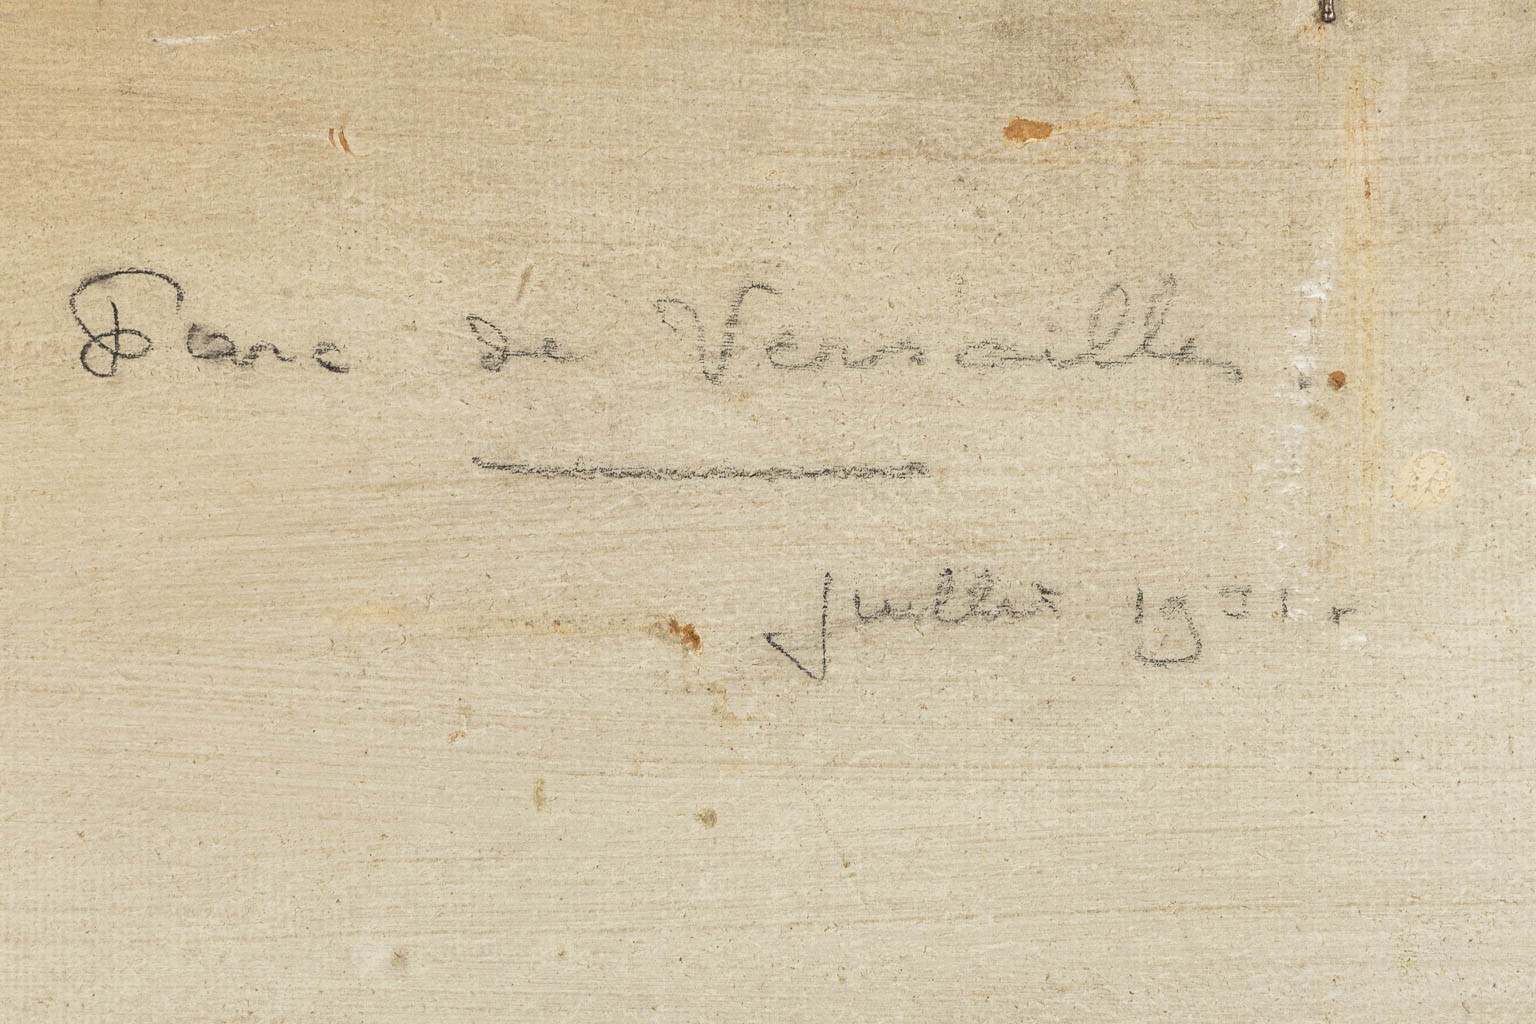 Parc de Versailles.
Juillet